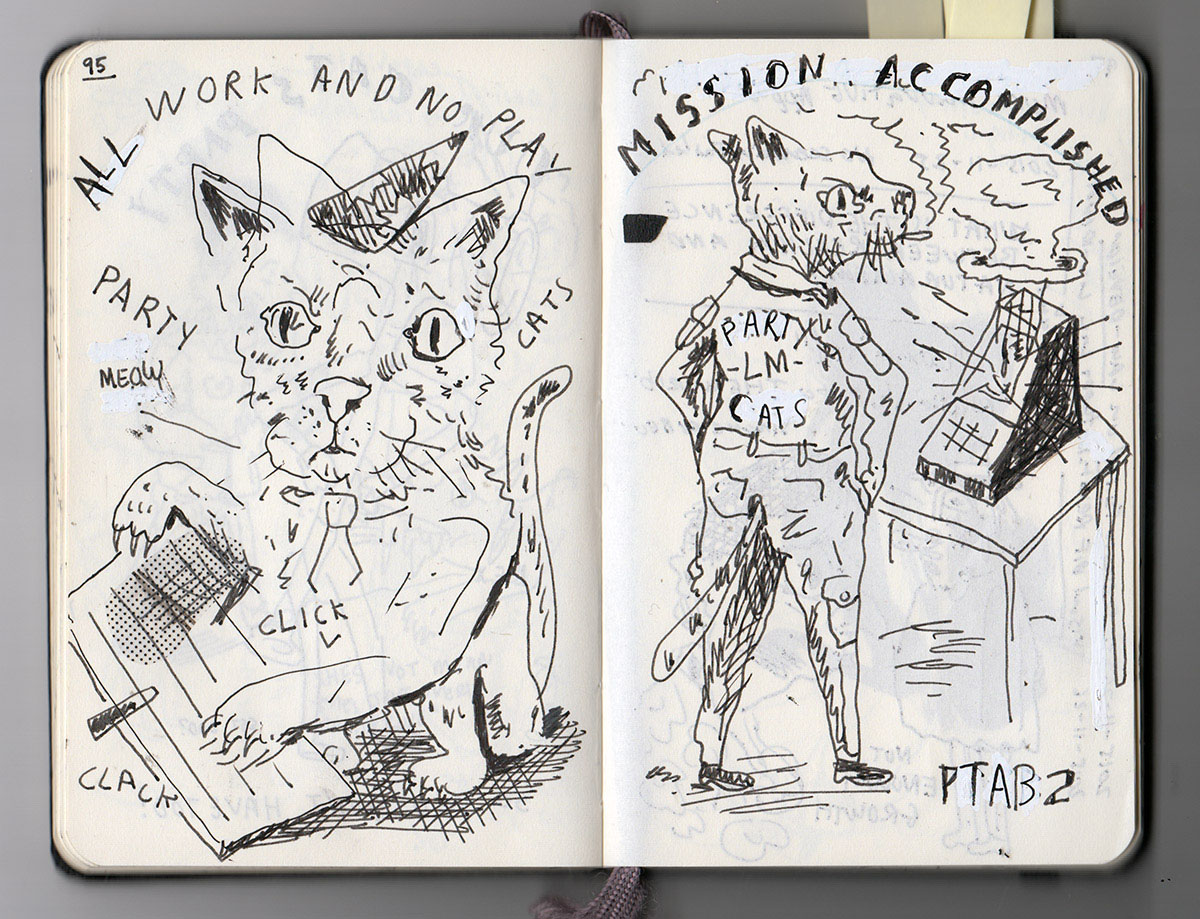 95
ALL WORK AND NO PLAY
PARTY
MEOW
CATS
CLICK
CLACK
MISSION ACCOMPLISHED
PARTY
-LM-
CATS
PTAB2